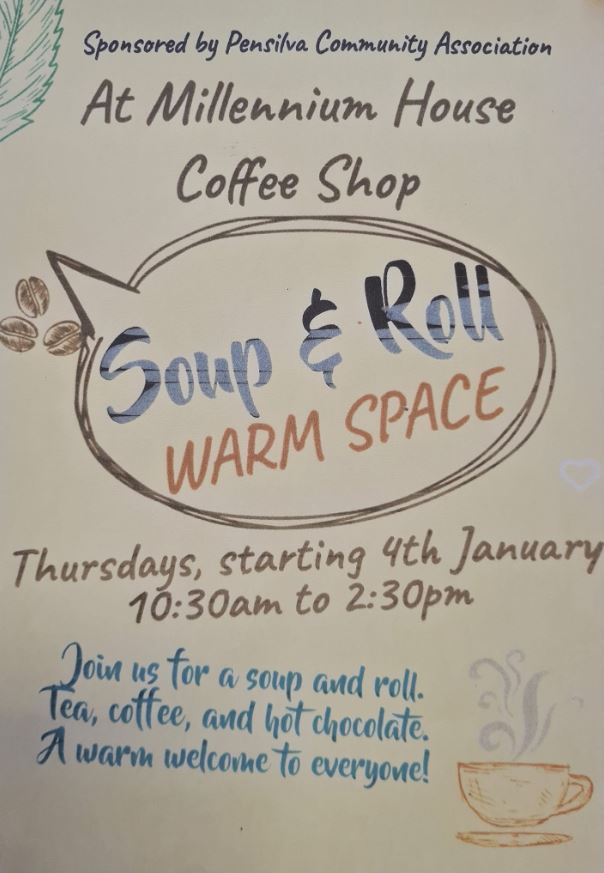 Sponsored by Pensilva Community Association
At Millennium House
Coffee Shop
Soup & Roll
WARM SPACE
Thursdays, starting 4th January
10:30am to 2:30pm
Join us for a soup and roll.
Tea, coffee, and hot chocolate.
A warm welcome to everyone!